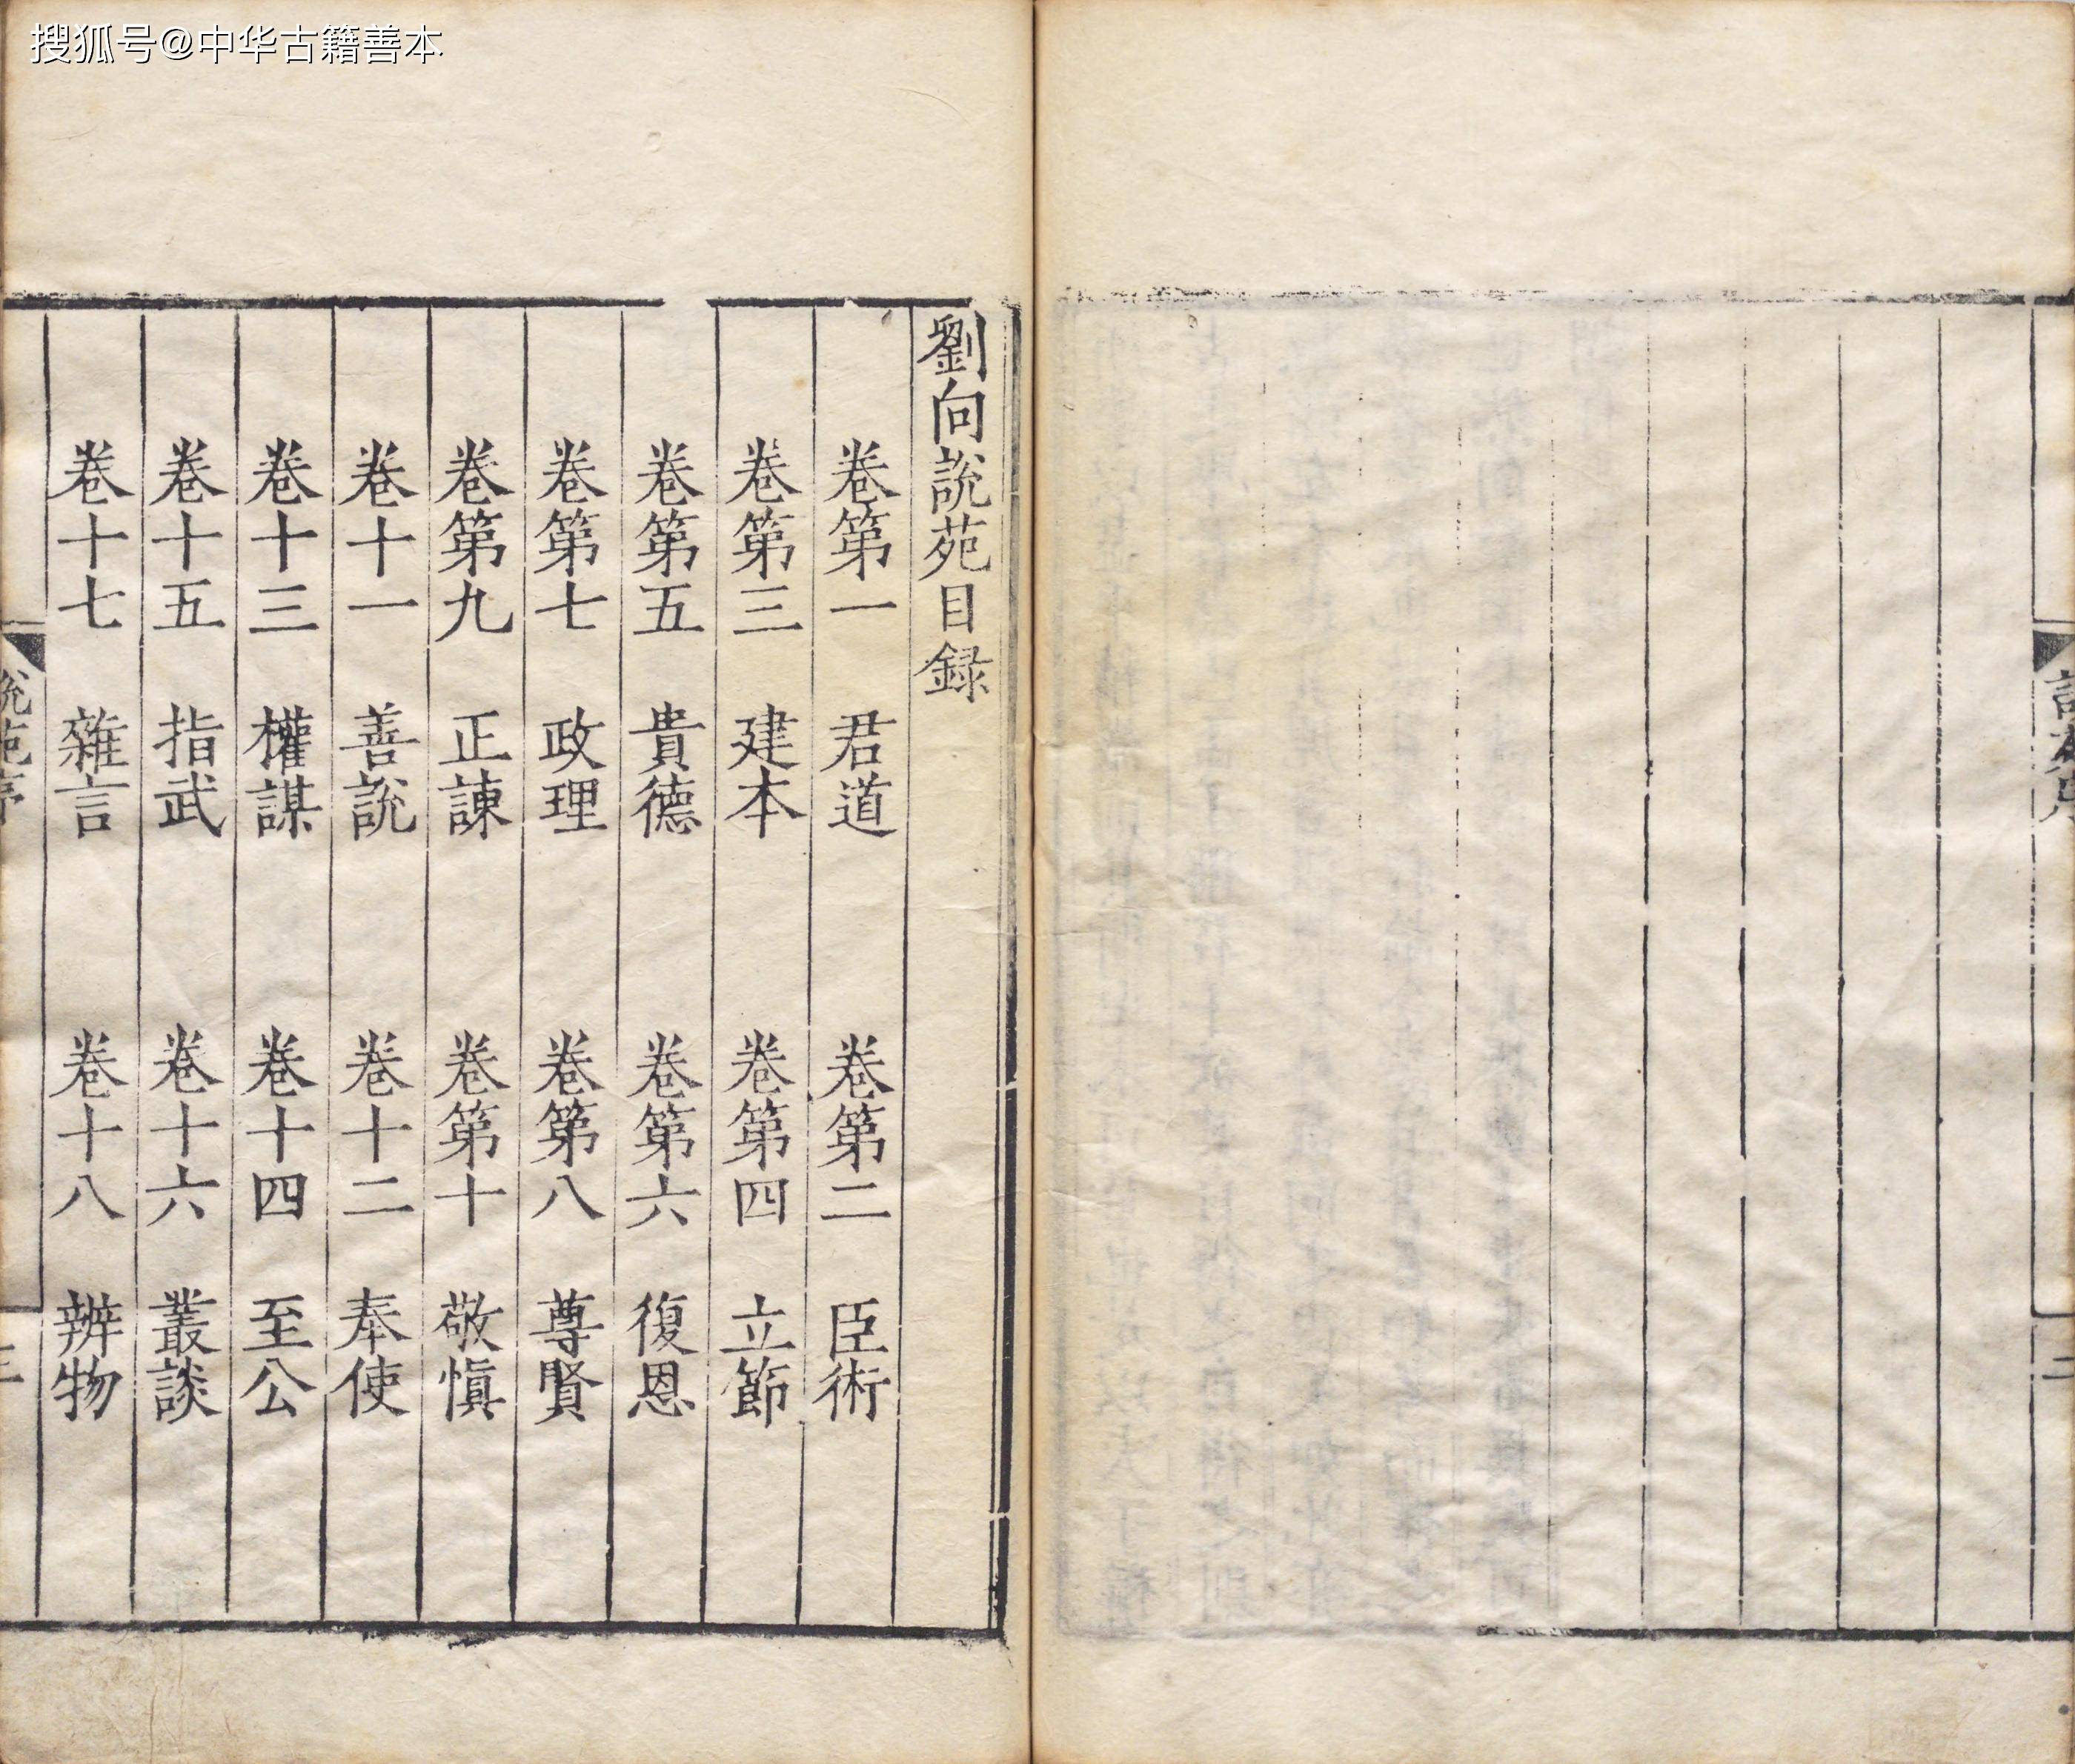 搜狐号@中华古籍善本
劉向說苑目録
卷第一 君道 卷第二 臣術
卷第三 建本 卷第四 立節
卷第五 貴德 卷第六 復恩
卷第七 政理 卷第八 尊賢
卷第九 正諫 卷第十 敬慎
卷十一 善說 卷十二 奉使
卷十三 權謀 卷十四 至公
卷十五 指武 卷十六 叢談
卷十七 雜言 卷十八 辨物
說苑序